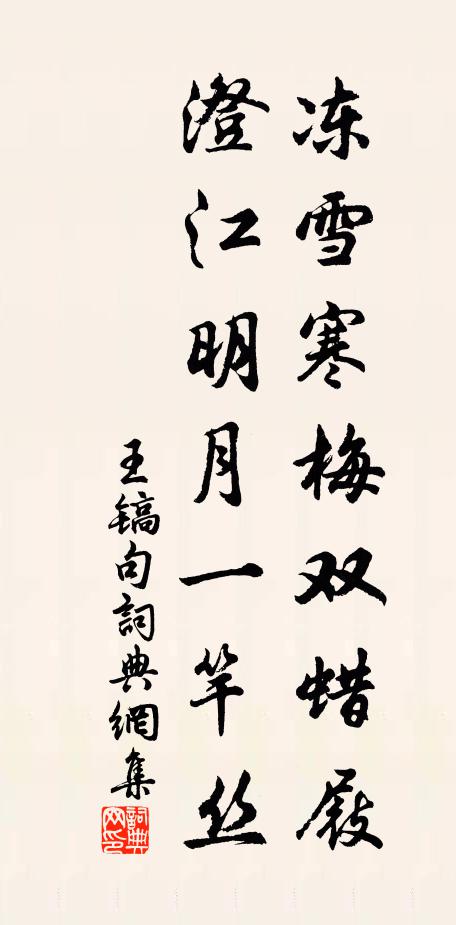 冻雪寒梅双蜡屐
澄江明月一竿丝
王镐句詞典網集
詞典网印